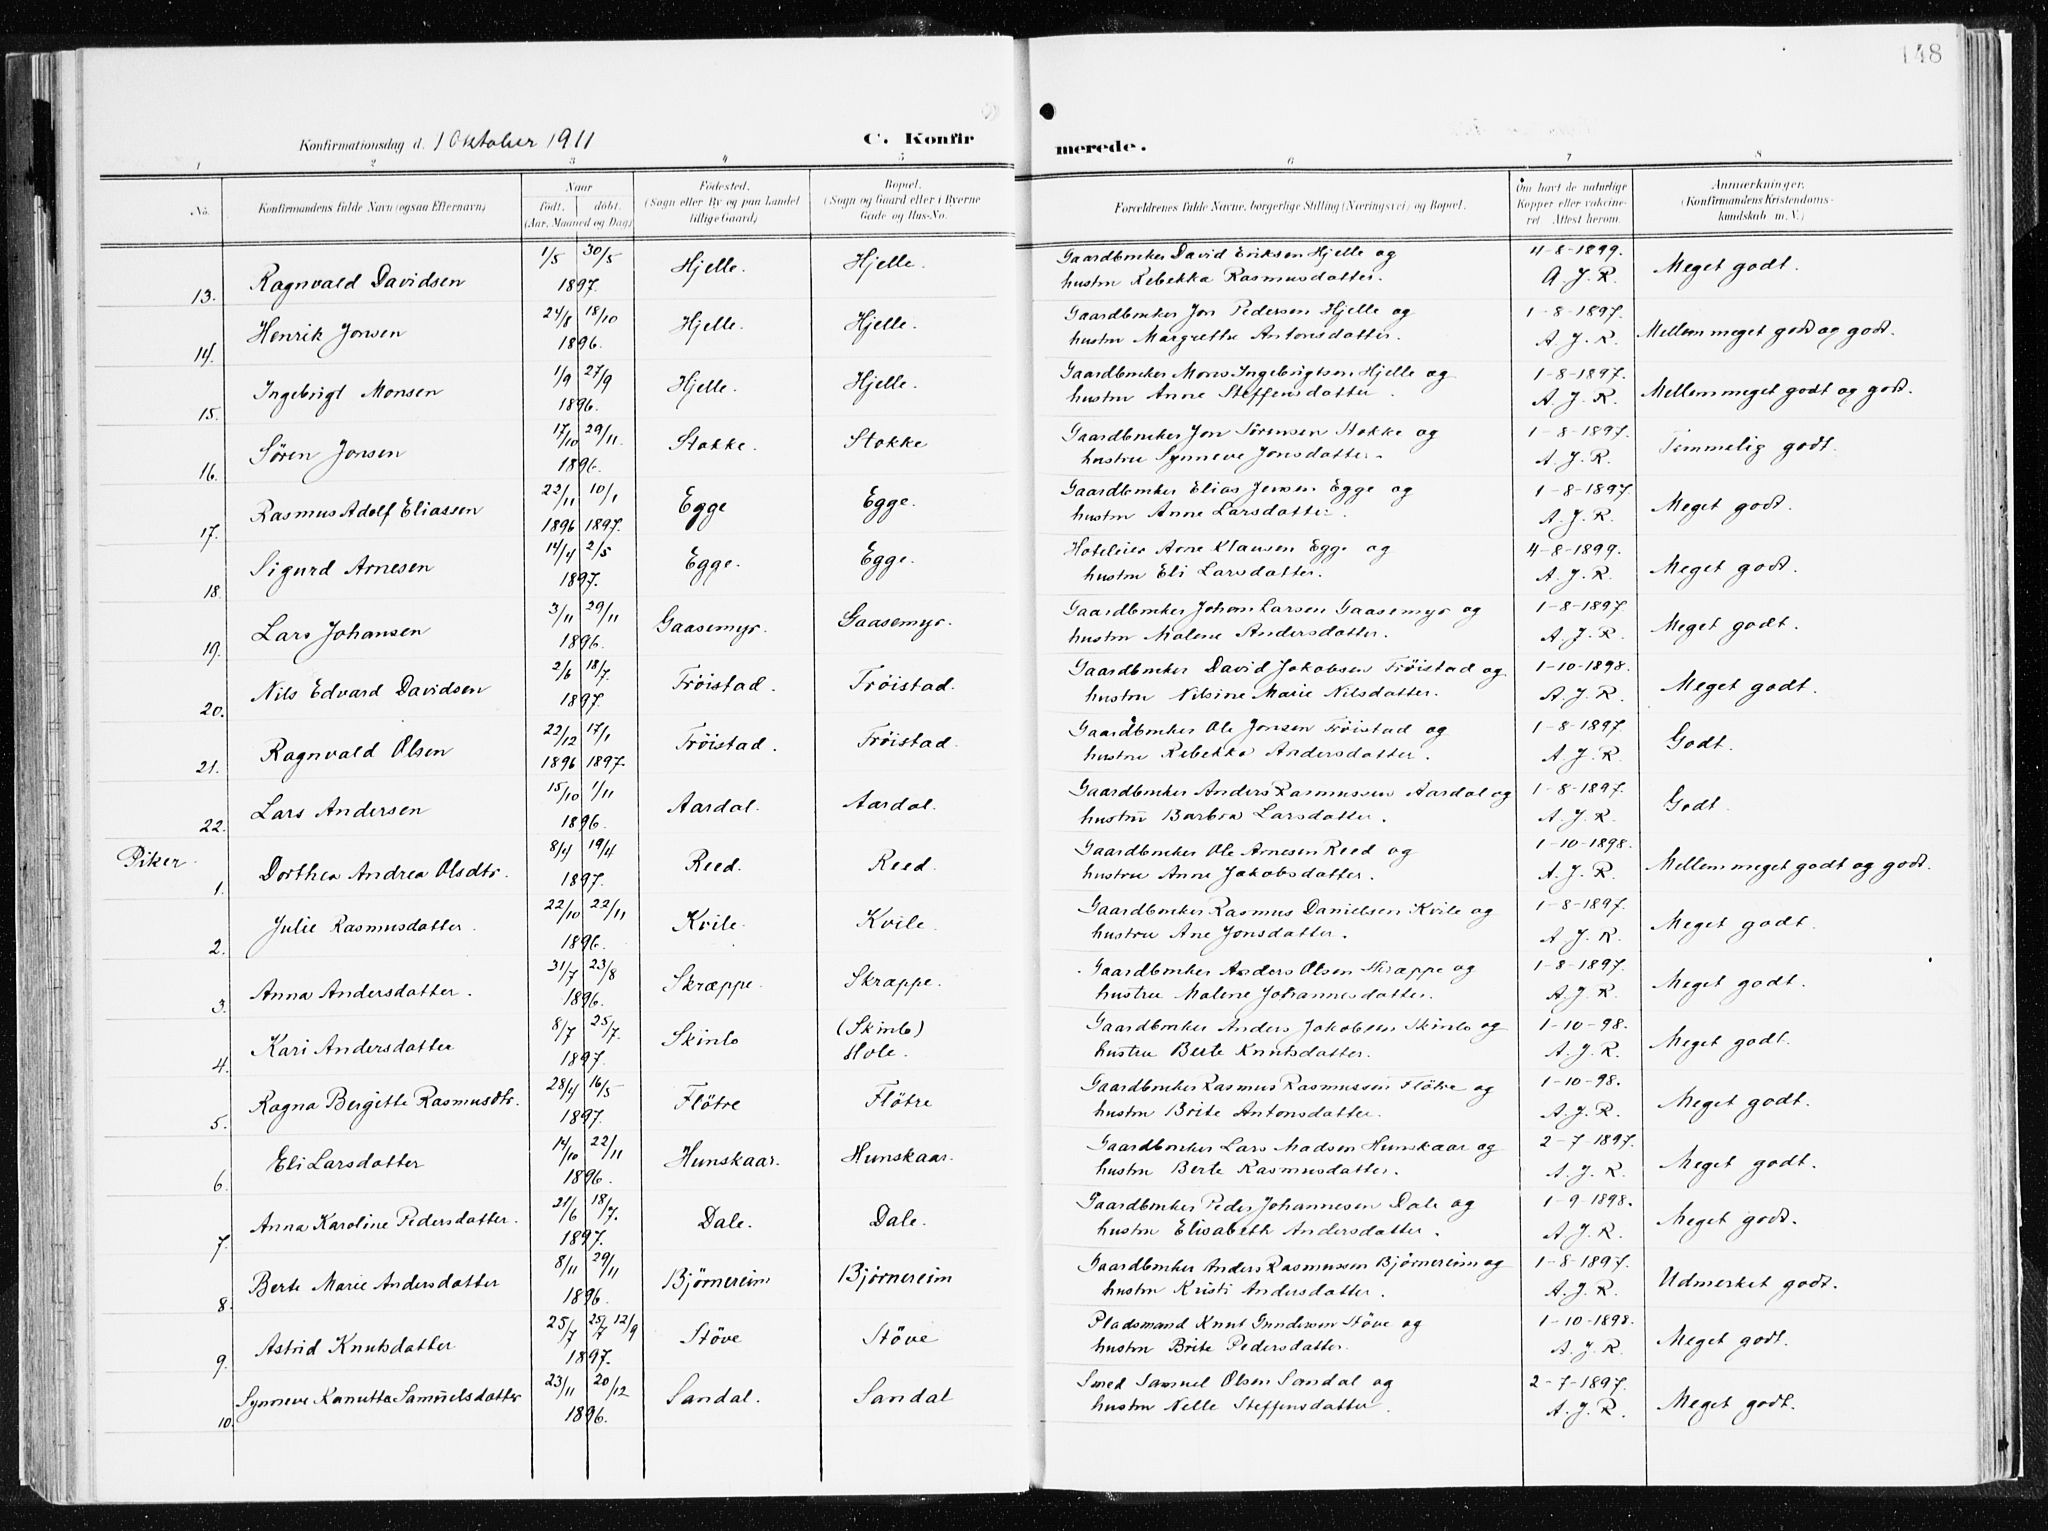 148
Konfirmationsdag d. 1 Oktober 1911 C. Konfirmerede.
1 2 3 4 5 6 7 8
No. Konfirmandens fulde Navn (ogsaa Efternavn) Naar født. døbt. (Aar, Maaned og Dag) Fødested. (Sogn eller By og paa Landet tillige Gaard) Bopæl. (Sogn og Gaard eller i Byerne Gade og Hus-No. Forældrenes fulde Navne, borgerlige Stilling (Næringsvei) og Bopæl. Om havt de naturlige Kopper eller vakcineret. Attest herom. Anmærkninger. (Konfirmandens Kristendomskundskab m. V.)
13. Ragnvald Davidsen 1/5 30/5 1897. Hjelle. Hjelle. Gaardbruker David Eriksen Hjelle og 11-8-1899.
hustru Rebekka Rasmusdatter. A. J. R. Meget godt.
14. Henrik Jonsen 24/8 18/10 1896. Hjelle. Hjelle. Gaardbruker Jon Pedersen Hjelle og 1-8-1897.
hustru Margrethe Antonsdatter. A. J. R. Mellem meget godt og godt.
15. Ingebrigt Monsen 1/9 27/9 1896. Hjelle. Hjelle. Gaardbruker Mons Ingebrigtsen Hjelle og 1-8-1897.
hustru Anne Steffensdatter. A. J. R. Mellem meget godt og godt.
16. Sören Jonsen 17/10 29/11. 1896. Stokke. Stokke Gaardbruker Jon Sørensen Stokke og 1-8-1897.
hustru Synneve Jonsdatter. A. J. R. Temmelig godt.
17. Rasmus Adolf Eliassen 22/11 10/1 1896 1897. Egge Egge. Gaardbruker Elias Jensen Egge og 1-8-1897.
hustru Anne Larsdatter. A. J. R. Meget godt.
18. Sigurd Arnesen 14/4 2/5 1897. Egge. Egge. Hoteleier Arne Klausen Egge og 4-8-1899.
hustru Eli Larsdatter. A. J. R. Meget godt.
19. Lars Johansen 3/11 29/11 1896. Gaasemyr. Gaasemyr. Gaardbruker Johan Larsen Gaasemyr og 1-8-1897.
hustru Malene Andersdatter. A. J. R. Meget godt.
20. Nils Edvard Davidsen 2/6 18/7. 1897. Trôistad. Trôistad. Gaardbruker David Jakobsen Trôistad og 1-10-1898.
hustru Nilsine Marie Nilsdatter. A. J. R. Meget godt.
21. Ragnvald Olsen 22/12 17/1 1896 1897. Trôistad. Trôistad. Gaardbruker Ole Jonsen Trôistad og 1-8-1897.
hustru Rebekka Andersdatter. A. J. R. Godt.
22. Lars Andersen 15/10 1/11 1896. Aardal. Aardal. Gaardbruker Anders Rasmussen Aardal og 1-8-1897.
hustru Barbra Larsdatter. A. J. R. Godt.
Piker.
1. Dorthea Andrea Olsdtr. 8/4 19/4 1897. Reed. Reed. Gaardbruker Ole Arnesen Reed og 1-10-1898.
hustru Anne Jakobsdatter. A. J. R. Mellem meget godt og godt.
2. Julie Rasmusdatter. 22/10 22/11 1896. Kvile. Kvile. Gaardbruker Rasmus Danielsen Kvile og 1-8-1897.
hustru Ane Jonsdatter. A. J. R. Meget godt.
3. Anna Andersdatter. 31/7 23/8 1896. Skræppe. Skræppe. Gaardbruker Anders Olsen Skræppe og 1-8-1897.
hustru Malene Johannesdatter. A. J. R. Meget godt.
4. Kari Andersdatter 8/7 25/7. 1897. Skinlo (Skinlo) Hole. Gaardbruker Anders Jakobsen Skinlo og 1-10-98.
hustru Berte Knutsdatter. A. J. R. Meget godt.
5. Ragna Bergitte Rasmusdtr. 28/4 16/5 1897. Flötre Flötre Gaardbruker Rasmus Rasmussen Flötre og 1-10-98.
hustru Brite Antonsdatter. A. J. R. Meget godt.
6. Eli Larsdatter 14/10 22/11 1896. Hunskaar. Hunskaar. Gaardbruker Lars Madsen Hunskaar og 2-7-1897.
hustru Berte Rasmusdatter. A. J. R. Meget godt.
7. Anna Karoline Pedersdatter. 21/6 18/7. 1897. Dale. Dale. Gaardbruker Peder Johannesen Dale og 1-9-1898.
hustru Elisabeth Andersdatter. A. J. R. Meget godt.
8. Berte Marie Andersdatter 8/11 29/11 1896. Bjørnereim Bjørnereim Gaardbruker Anders Rasmussen Bjørnereim og 1-8-1897.
hustru Kristi Andersdatter. A. J. R. Udmerket godt.
9. Astrid Knutsdatter 25/7 25/7 12/9 1897. Stöve Stöve Pladsmand Knut Gundersen Stöve og 1-10-1898.
hustru Brite Pedersdatter. A. J. R. Meget godt.
10. Synneve Kanutta Samuelsdatter 23/11 20/12 1896. Sandal. Sandal Smed Samuel Olsen Sandal og 2-7-1897.
hustru Nelle Steffensdatter. A. J. R. Meget godt.